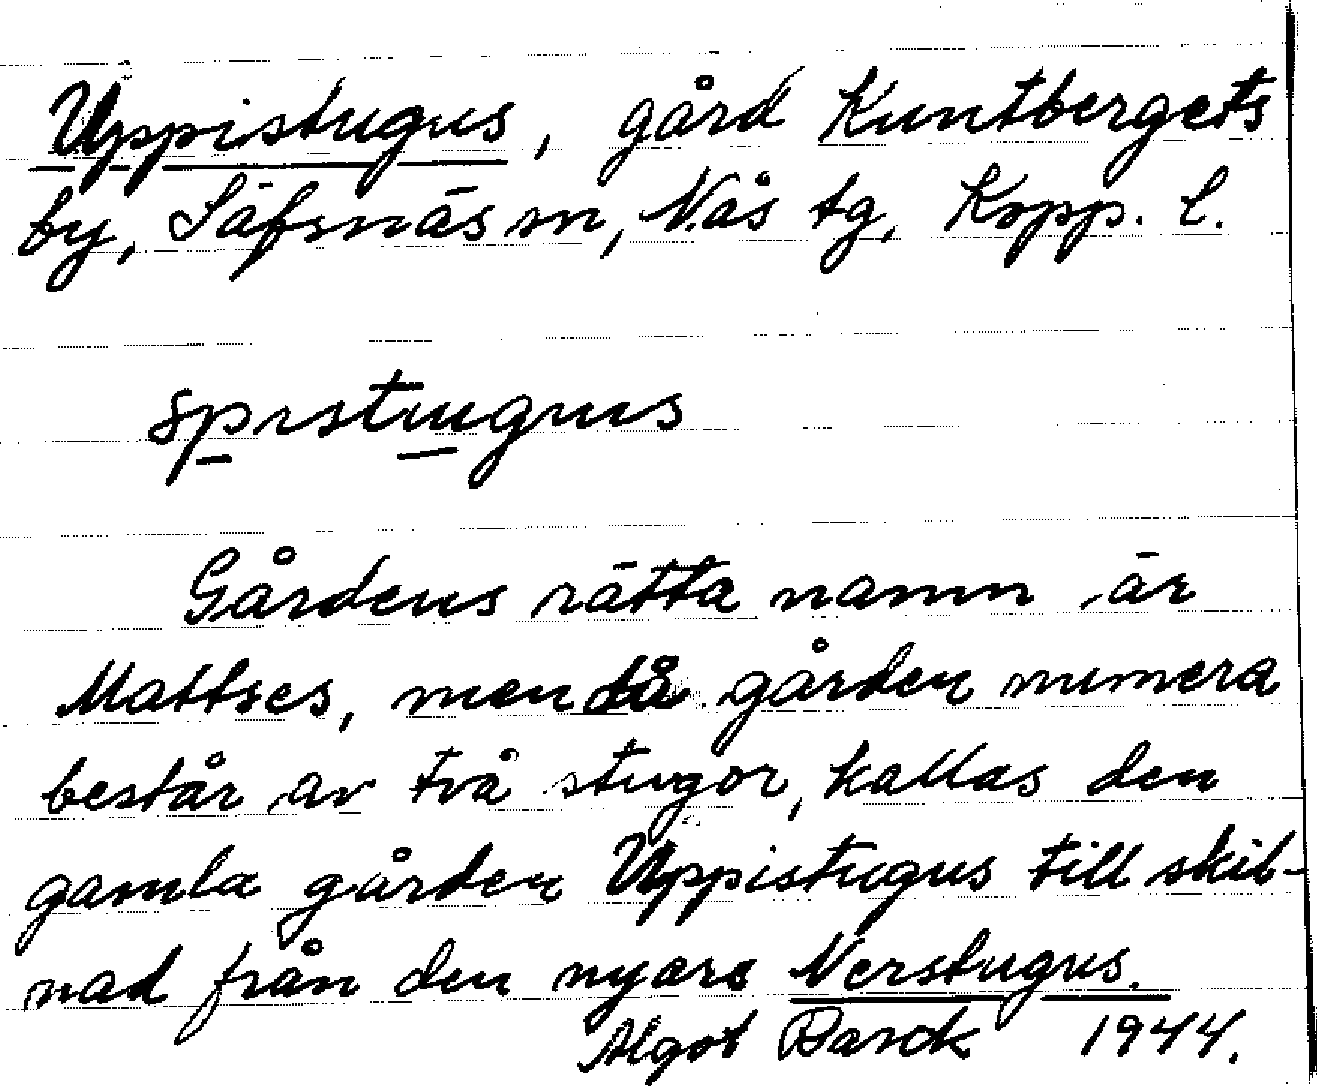 Uppistugus, gård Kuntbergets
by, Säfsnäs sn, Nås tg, Kopp. l.
Gårdens rätta namn är
Mattses, men då gården numera
består av två stugor, kallas den
gamla gården Uppistugus till skil-
nad från den nyare Nerstugus.
Algot Barck 1944.